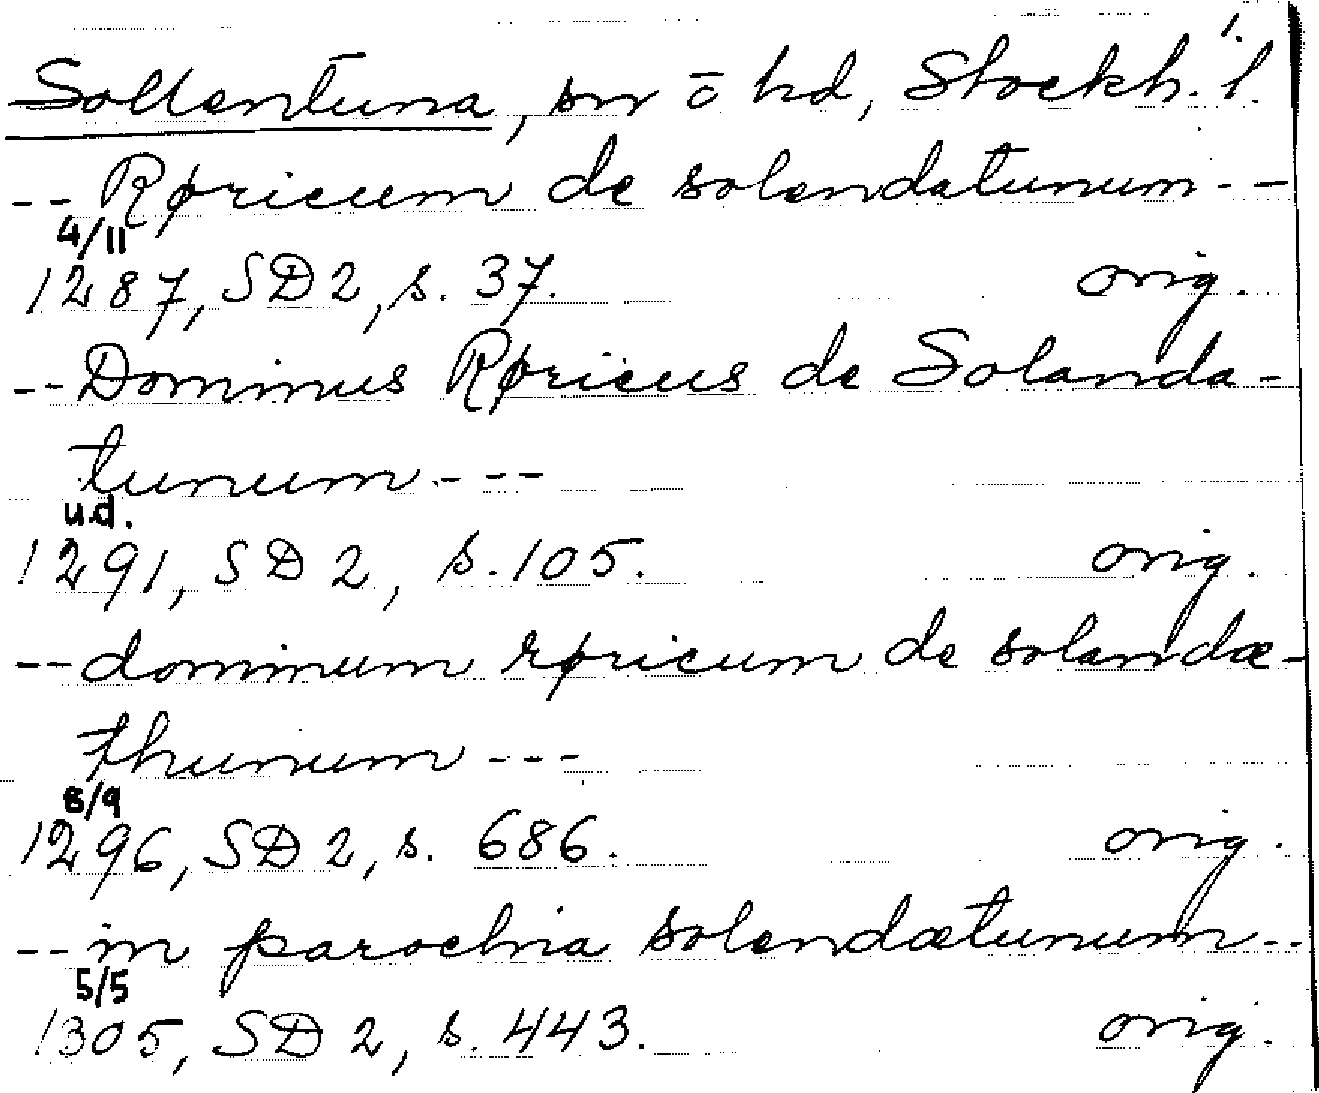 1.
Sollentuna, sn o hd, Stockh. l.
-- Røricum de solendatunum --
4/11
1287, SD 2, s. 37. orig.
-- Dominus Røricus de Solanda-
tunum ---
u.d.
1291, SD 2, s. 105. orig.
-- dominum røricum de solandæ-
thunum ---
8/9
1296, SD 2, s. 686. orig.
-- in parochia solendætunum --
5/5
1305, SD 2, s. 443. orig.